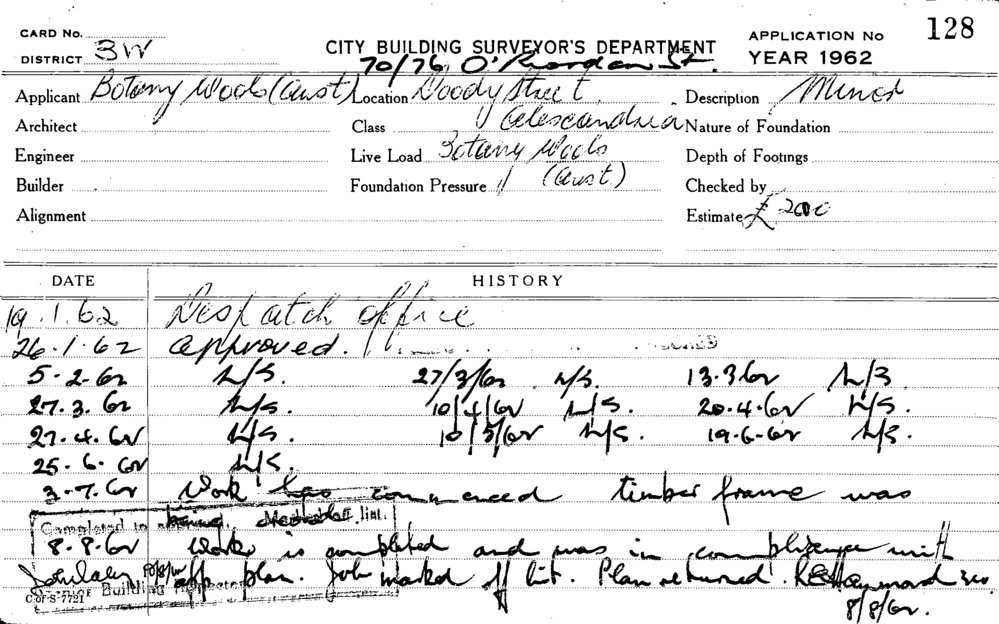 CARD No.
DISTRICT 3W
CITY BUILDING SURVEYOR'S DEPARTMENT
APPLICATION No 128
YEAR 1962
70/76 O'Riordan St.
Applicant Botany Wools (Aust) Location Doody Street Description Minor
Architect Class Alexandria Nature of Foundation
Engineer Live Load Botany Wools Depth of Footings
Builder Foundation Pressure (Aust.) Checked by
Alignment Estimate £ 200
DATE HISTORY
19.1.62 Despatch office
26.1.62 approved.
5.2.62 N/S. 27/3/62 N/S. 13.3.62 N/S
27.3.62 N/S. 10/4/62 N/S. 20.4.62 N/S.
27.4.62 N/S. 10/5/62 N/S. 19.6.62 N/S.
25.6.62 N/S.
3.7.62 Work has commenced timber frame was
being
Completed list.
8.8.62 Work is completed and was in compliance with
app plan. Job marked off list. Plan returned.
Senior Building Inspector
C of S 7721
8/8/62.